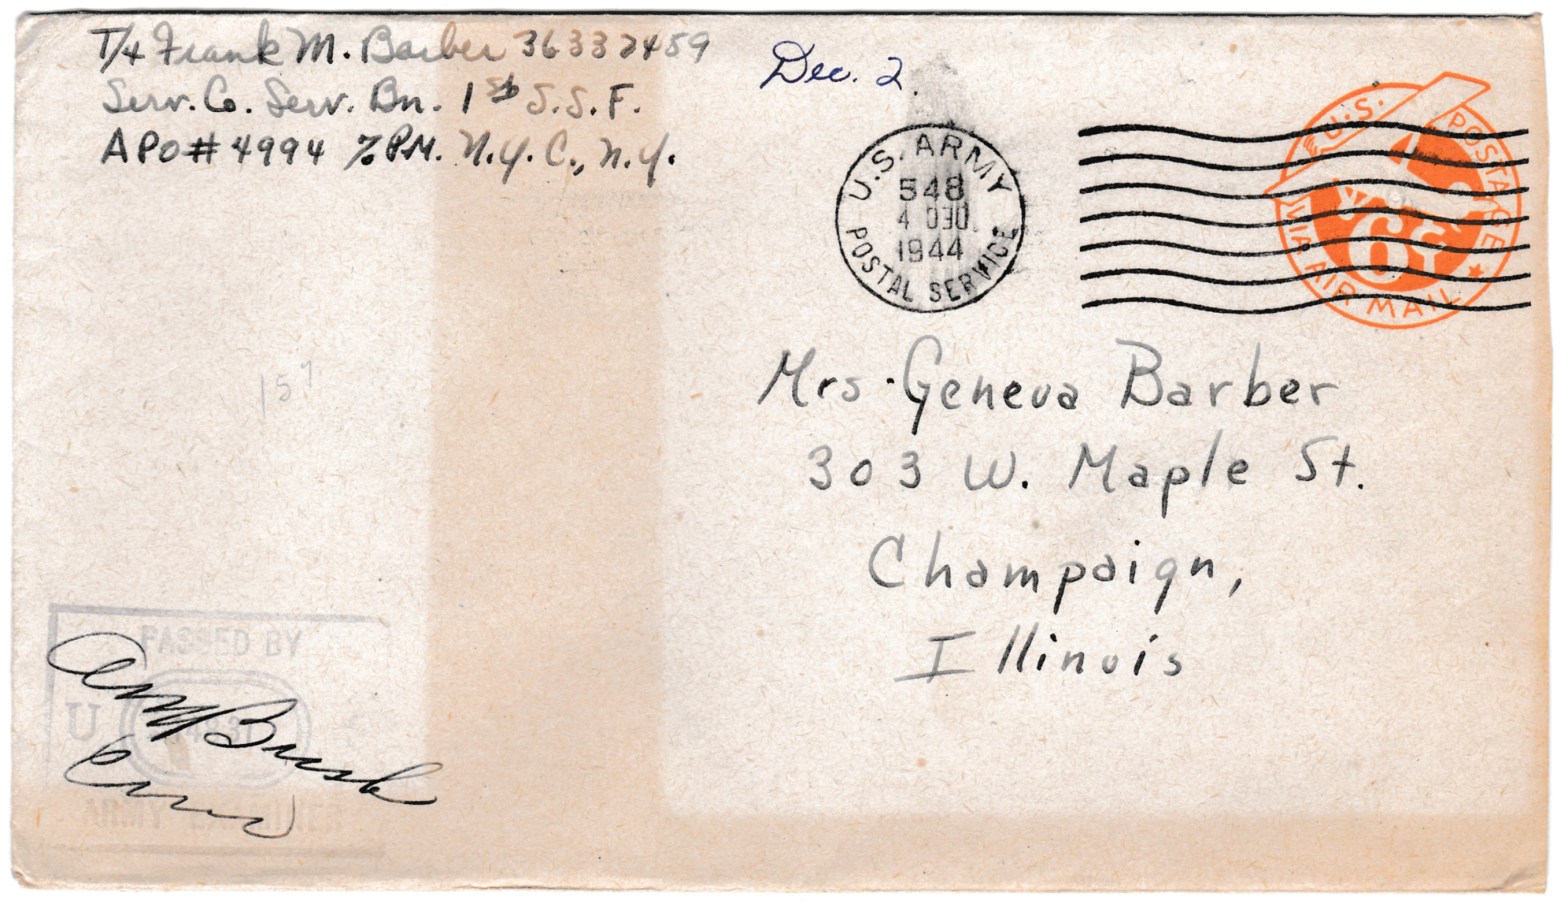 T/4 Frank M. Barber 36337459
Serv. Co. Serv. Bn. 1st S.S.F.
APO# 4994 % PM. N.Y.C., N.Y.
Dec. 2.
U.S. ARMY
548
4 D30
1944
POSTAL SERVICE
U.S. POSTAGE
6¢
VIA AIR MAIL
Mrs. Geneva Barber
303 W. Maple St.
Champaign,
Illinois
157
PASSED BY
U
ARMY EXAMINER